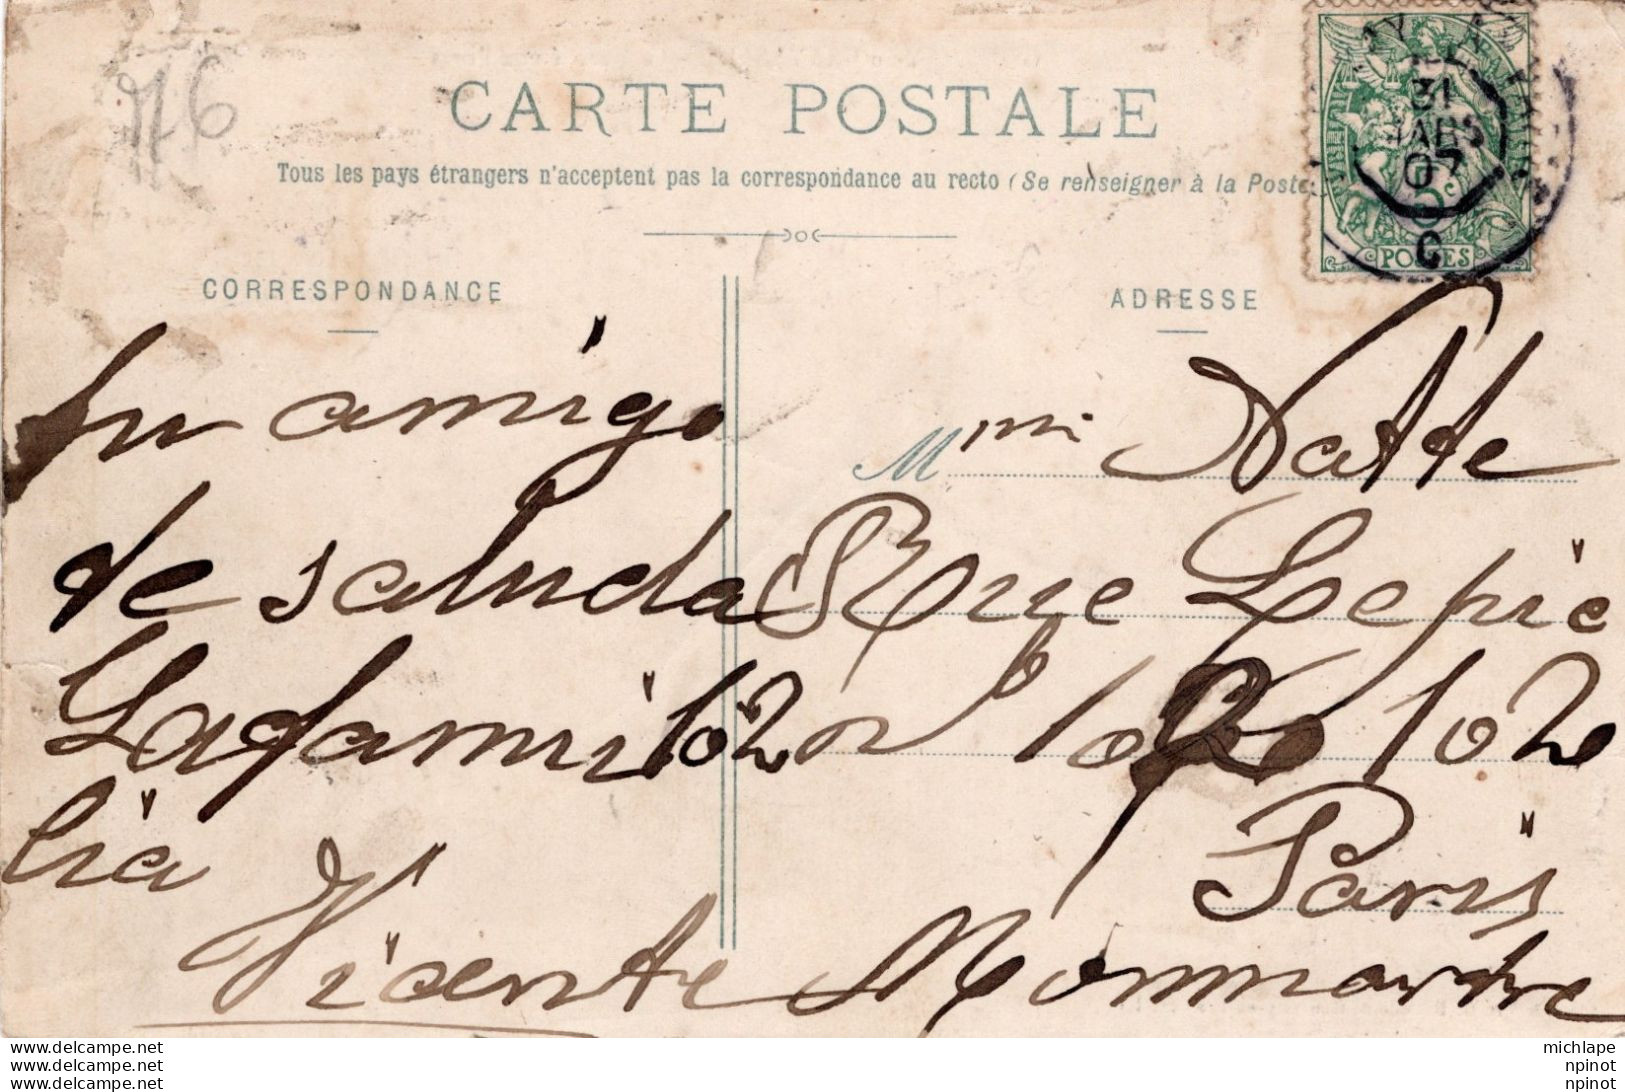 76
CARTE POSTALE
Tous les pays étrangers n'acceptent pas la correspondance au recto (Se renseigner à la Poste
31
MARS
07
5c
C
POSTES
CORRESPONDANCE
Su amigo
de saluda
Lafami
lia
Vicente
ADRESSE
M Natte
Rue Lepic
102 102
Paris
Monmartre
www.delcampe.net
www.delcampe.net
www.delcampe.net
michlape
npinot
npinot